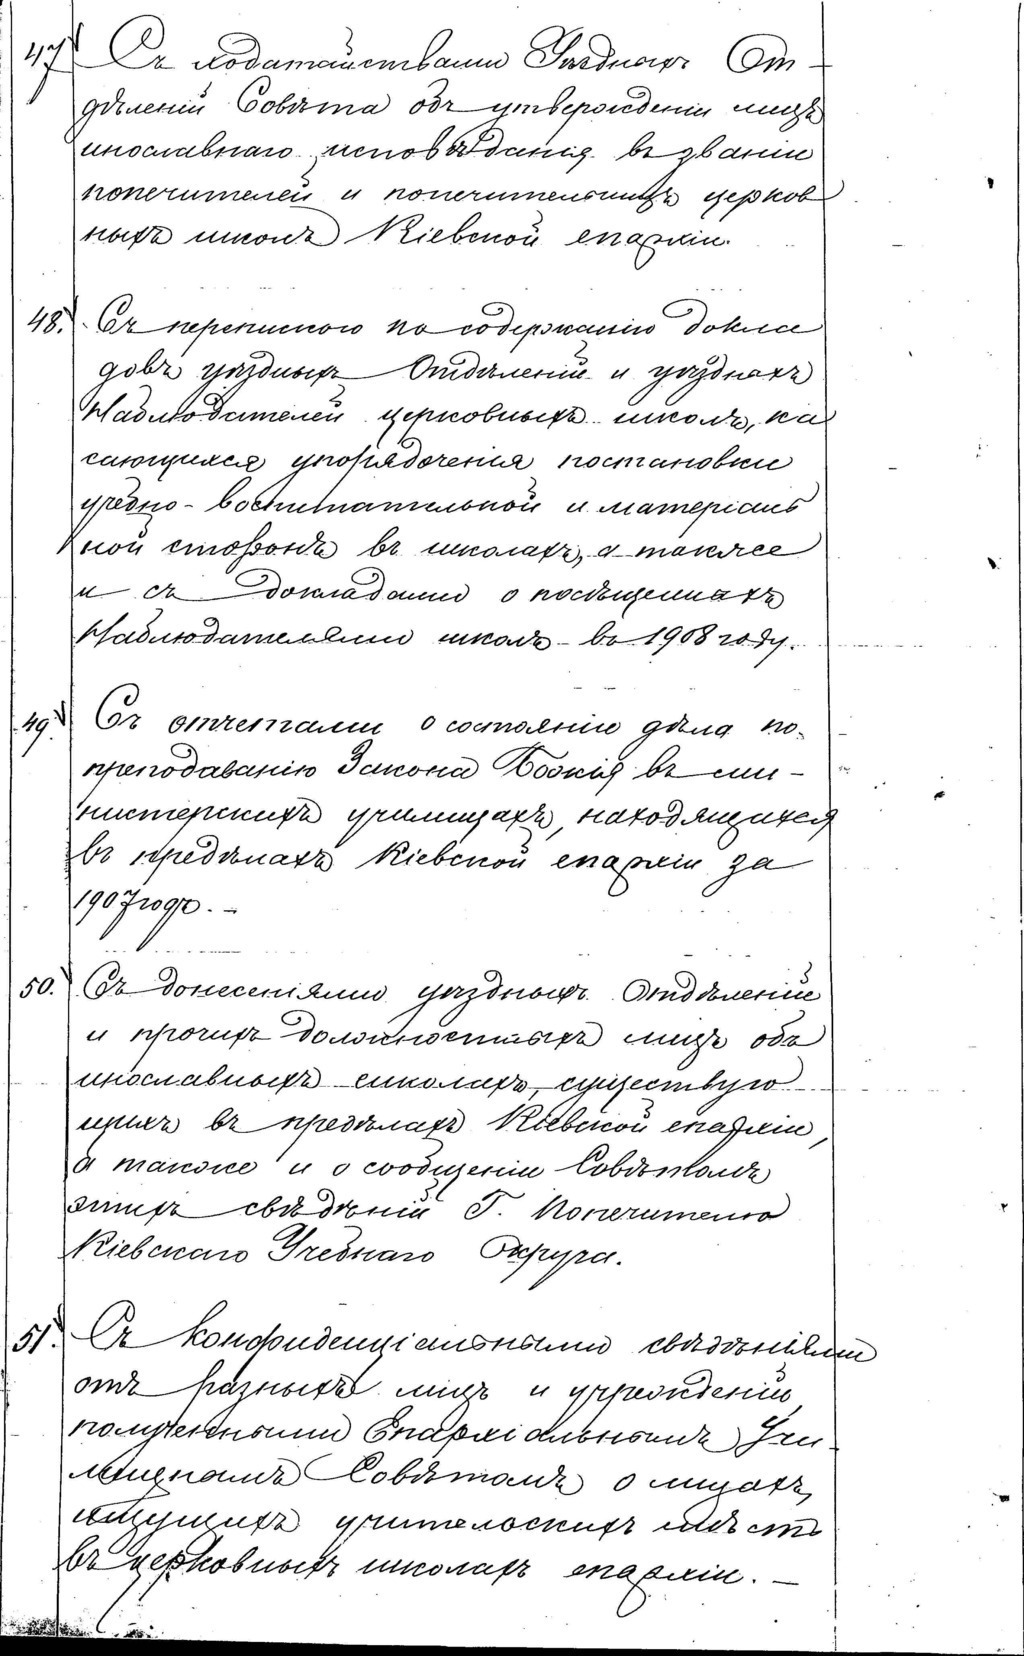 47 Съ ходатайствами Уѣздныхъ От-
дѣленій Совѣта объ утвержденіи лицъ
инославнаго исповѣданія въ званіи
попечителей и попечительницъ церков
ныхъ школъ Кіевской епархіи.
48. Съ перепискою по содержанію докла
довъ уѣздныхъ Отдѣленій и уѣздныхъ
Наблюдателей церковныхъ школъ, ка
сающихся упорядоченія постановки
учебно-воспитательной и матеріаль
ной сторонъ въ школахъ, а также
и съ докладами о посѣщеніяхъ
Наблюдателями школъ въ 1908 году.
49. Съ отчетами о состояніи дѣла по
преподаванію Закона Божія въ ми-
нистерскихъ училищахъ, находящихся
въ предѣлахъ Кіевской епархіи за
1907 годъ. -
50. Съ донесеніями уѣздныхъ Отдѣленій
и прочихъ должностныхъ лицъ объ
инославныхъ школахъ, существую
щихъ въ предѣлахъ Кіевской епархіи,
а также и о сообщеніи Совѣтомъ
этихъ свѣдѣній Г. Попечителю
Кіевскаго Учебнаго Округа.
51. Съ конфиденціальными свѣдѣніями
отъ разныхъ лицъ и учрежденій,
полученными Епархіальнымъ Учи-
лищнымъ Совѣтомъ о лицахъ,
ищущихъ учительскихъ мѣстъ
въ церковныхъ школахъ епархіи. -